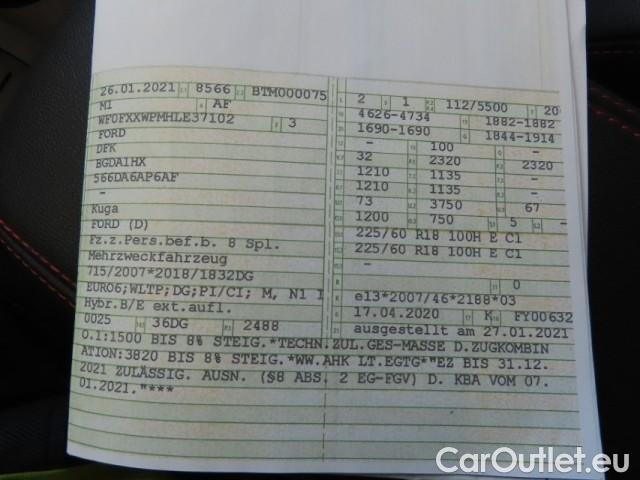 26.01.2021 8566 BTM000075
M1 AF
WF0FXXWPMHLE37102 3
FORD
DFK
BGDA1HX
566DA6AP6AF
-
Kuga
FORD (D)
Fz.z.Pers.bef.b. 8 Spl.
Mehrzweckfahrzeug
715/2007*2018/1832DG
EURO6;WLTP;DG;PI/CI; M, N1 I
Hybr.B/E ext.aufl.
0025 36DG 2488
2 1 112/5500 20
4626-4734 1882-1882
1690-1690 1844-1914
- 100 -
32 2320 2320
1210 1135 -
1210 1135 -
73 3750 67
1200 750 5 -
225/60 R18 100H E C1
225/60 R18 100H E C1
-
0
e13*2007/46*2188*03
17.04.2020 K FY00632
ausgestellt am 27.01.2021
O.1:1500 BIS 8% STEIG.*TECHN.ZUL.GES-MASSE D.ZUGKOMBIN
ATION:3820 BIS 8% STEIG.*WW.AHK LT.EGTG*"EZ BIS 31.12.
2021 ZULÄSSIG. AUSN. (§8 ABS. 2 EG-FGV) D. KBA VOM 07.
01.2021."***
CarOutlet.eu